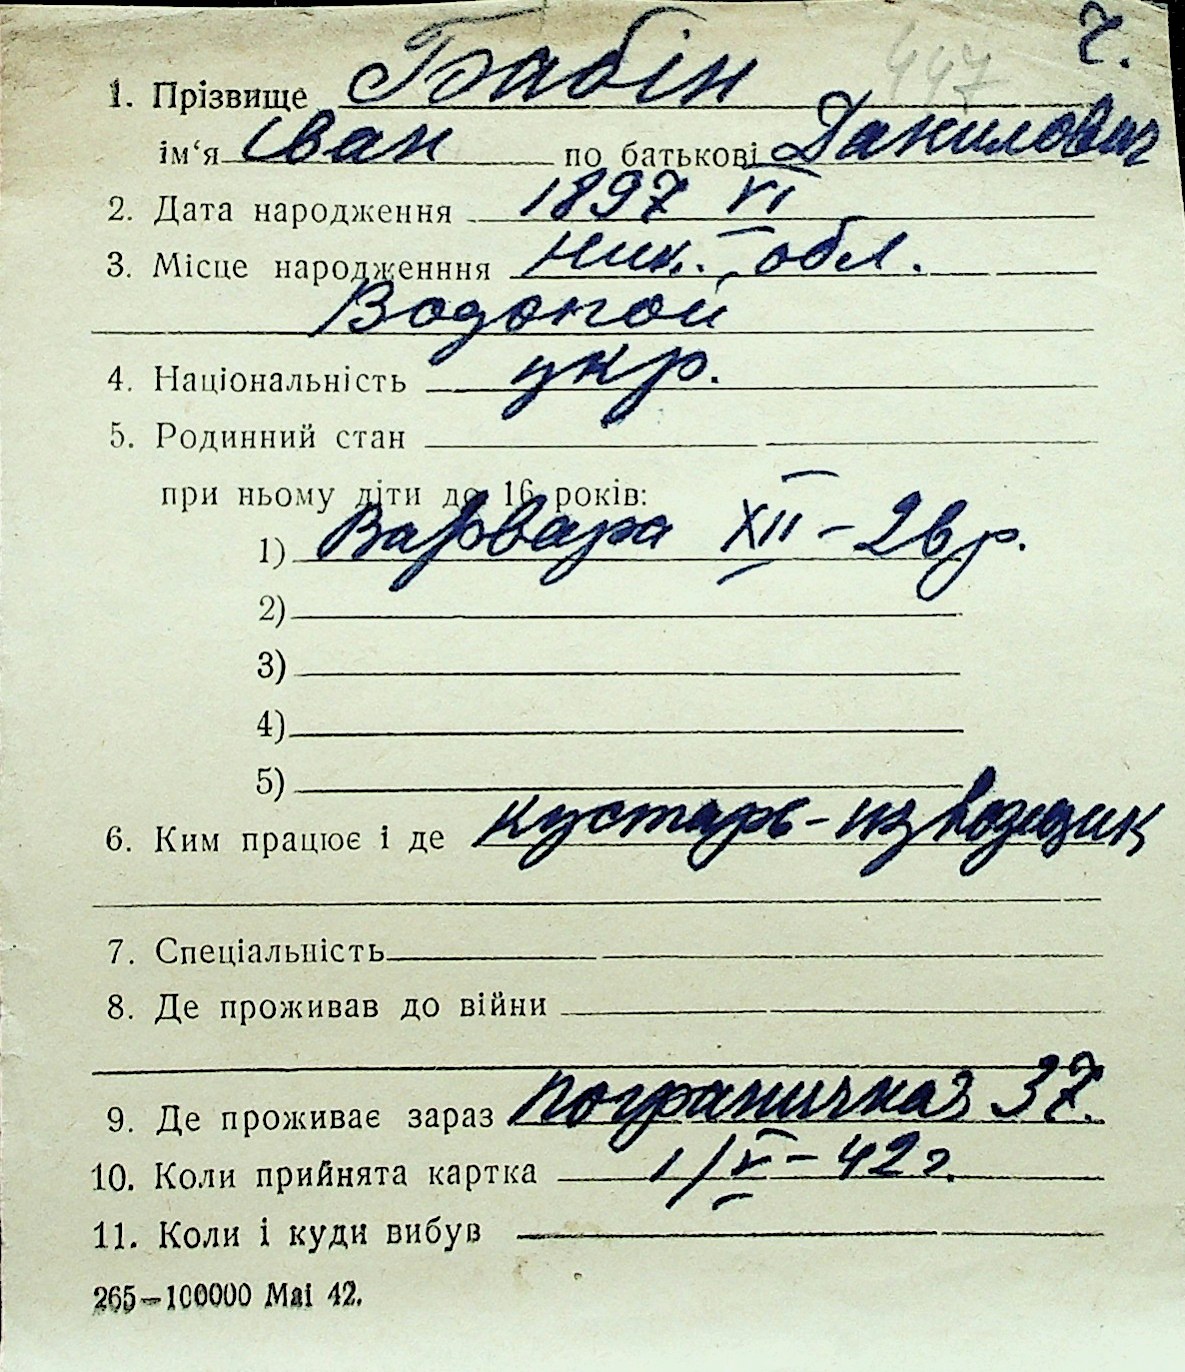 ч.
447
1. Прізвище Бабін
ім‘я Іван по батькові Данилович
2. Дата народження 1897 VI
3. Місце народженння Ник. обл.
Водопой
4. Національність укр.
5. Родинний стан
при ньому діти до 16 років:
1) Варвара XII – 26 р.
2)
3)
4)
5)
6. Ким працює і де кустарь-извозщик
7. Спеціальність
8. Де проживав до війни
9. Де проживає зараз Пограничная 37.
10. Коли прийнята картка 1/V – 42 г.
11. Коли і куди вибув
265—100000 Маі 42.